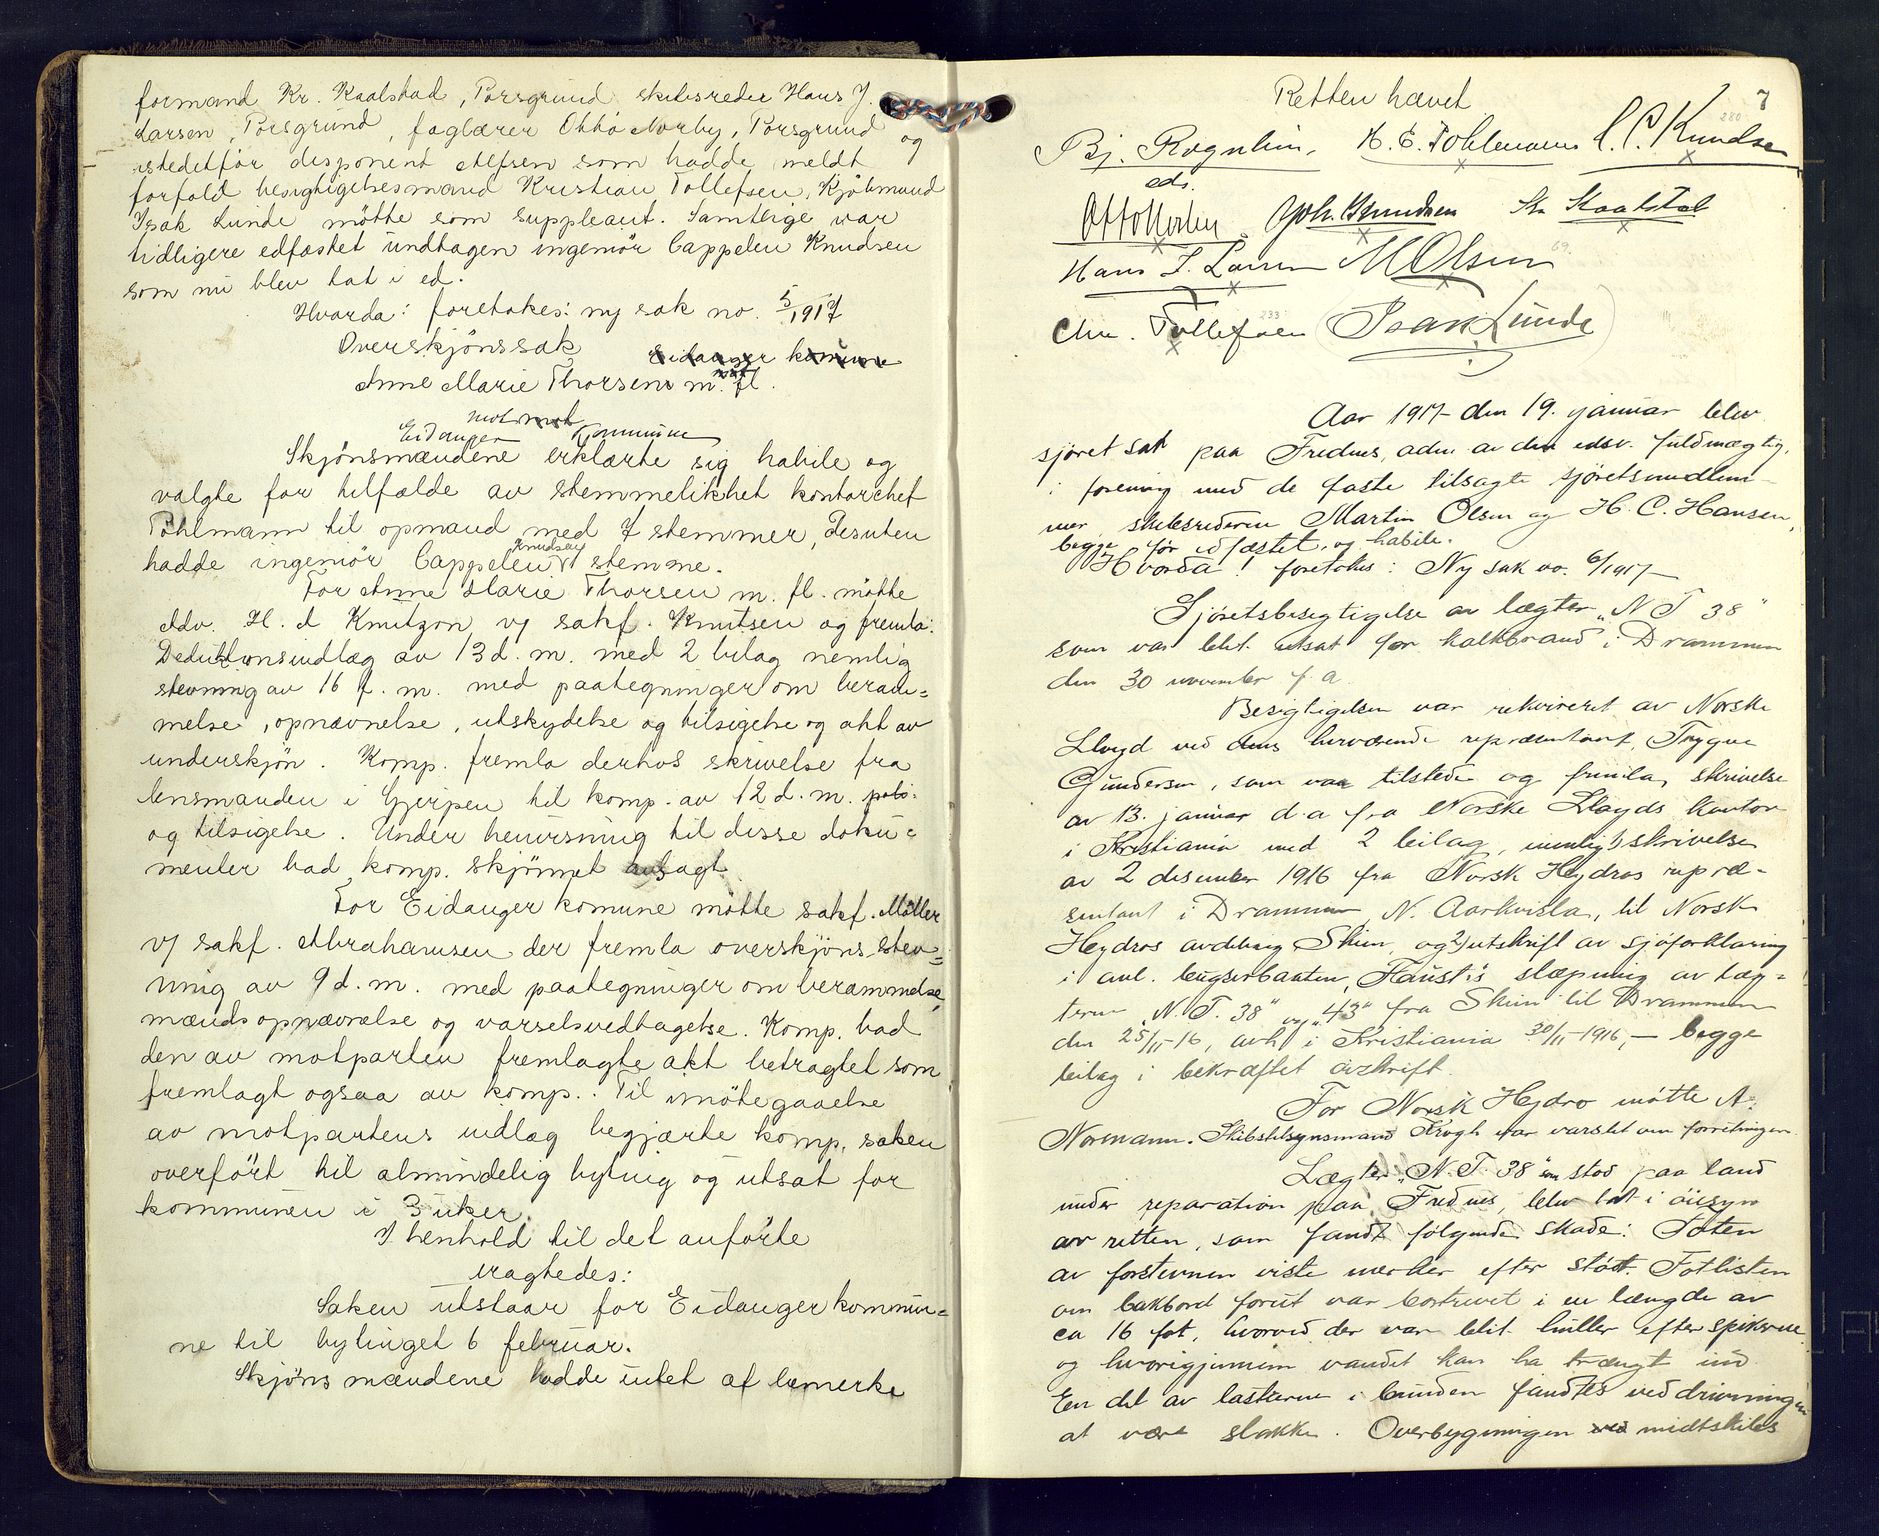 formand Kr. Kaalstad, Porsgrund skibsreder Hans J.
Larsen, Porsgrund, faglærer Otto Norby, Porsgrund og
istedetfor disponent Alfsen som hadde meldt
forfald besigtigelsesmand Kristian Tollefsen, kjøbmand
Isak Lunde møtte som suppleant. Samtlige var
tidligere edfæstet undtagen ingeniør Cappelen Knudsen
som nu blev tat i ed.
Hvorda: foretokes: ny sak no. 5/1917
Overskjønssak Eidanger komune
Anne Marie Thorsen m. fl.
mot mot
Eidanger Kommune
Skjønsmændene erklærte sig habile og
valgte for tilfælde av stemmelikhet kontorchef
Pohlmann til opmand med 7 stemmer, desuten
hadde ingeniør Cappelen Knudsen 1 stemme.
For Anne Marie Thorsen m. fl. møtte
adv. H. d Knutzon v/ sakf. Knutsen og fremla:
Deduktionsindlæg av 13 d. m. med 2 bilag nemlig
stevning av 16 f. m. med paategninger om beram=
melse, opnævnelse, utskydelse og tilsigelse og akt av
underskjøn. Komp. fremla derhos skrivelse fra
lensmanden i Gjerpen til komp. av 12 d. m.
og tilsigelse. Under henvisning til disse doku=
menter bad komp. skjønnet avsagt.
For Eidanger komune møtte sakf. Møller
v/ sakf. Abrahamsen der fremla overskjøns stev=
ning av 9 d. m. med paategninger om berammelse,
mændsopnævnelse og varselsvedtagelse. Komp. bad
den av motparten fremlagte akt betragtet som
fremlagt ogsaa av komp.. Til imøtegaaelse
av motpartens indlæg begjærte komp. saken
overført til almindelig byting og utsat for
kommunen i 3 uker.
I henhold til det anførte
eragtedes:
Saken utstaar for Eidanger kommu=
ne til bytinget 6 februar.
Skjønsmændene hadde intet at bemerke
7
280
Retten hævet
Bj. Rognlien, H. E. Pohlmann C. C. Knudsen
eds.
Otto Norby. Joh. Knudsen Kr Kaalstad
Hans J. Larsen M Olsen
69.
Chr. Tollefsen Isak Lunde
233
Aar 1917 den 19. januar blev
sjøret sat paa Frednes, adm. av den edsv. fuldmægtig,
i forening med de faste tilsagte sjøretsmedlem-
mer skibsrederne Martin Olsen og H. C. Hansen,
begge før edfæstet, og habile.
Hvorda! foretokes: Ny sak no. 6/1917
Sjøretsbesigtigelse av lægter „N T 38"
som var blit utsat for kalkbrand i Drammen
den 30 november f. a.
Besigtigelsen var rekvireret av Norske
Lloyd ved dens herværende repræsentant, Trygve
Gundersen, som var tilstede og fremla, skrivelse
av 13. januar d. a fra Norske Lloyds kontor
i Kristiania med 2 bilag, nemlig 1) skrivelse
av 2 desember 1916 fra Norsk Hydros repræ-
sentant i Drammen N. Aarkvisla, til Norsk
Hydros avdeling Skien, og 2) utskrift av sjøforklaring
i anl. bugserbaaten „Faust"s slæpning av læg=
terne „N. T. 38" og „43" fra Skien til Drammen
den 25/11-16, avh. i Kristiania 30/11-1916, - begge
bilag i bekræftet avskrift.
For Norsk Hydro møtte A.
Normann. Skibstilsynsmand Krogh var varslet om forretningen.
Lægter „N. T. 38" som stod paa land
under reparation paa Frednes, blev tat i øiesyn
av retten, som fandt følgende skade: Foten
av forstevnen viste merker efter støtt. Fotlisten
om bakbord forut var bortrevet i en længde av
ca 16 fot, hvorved der var blit huller efter spikerne
og hvorigjennem vandet kan ha trængt ind.
En del av lasterne i bunden fandtes ved drivningen
at være slakke. Overbygningen ved midtskibs